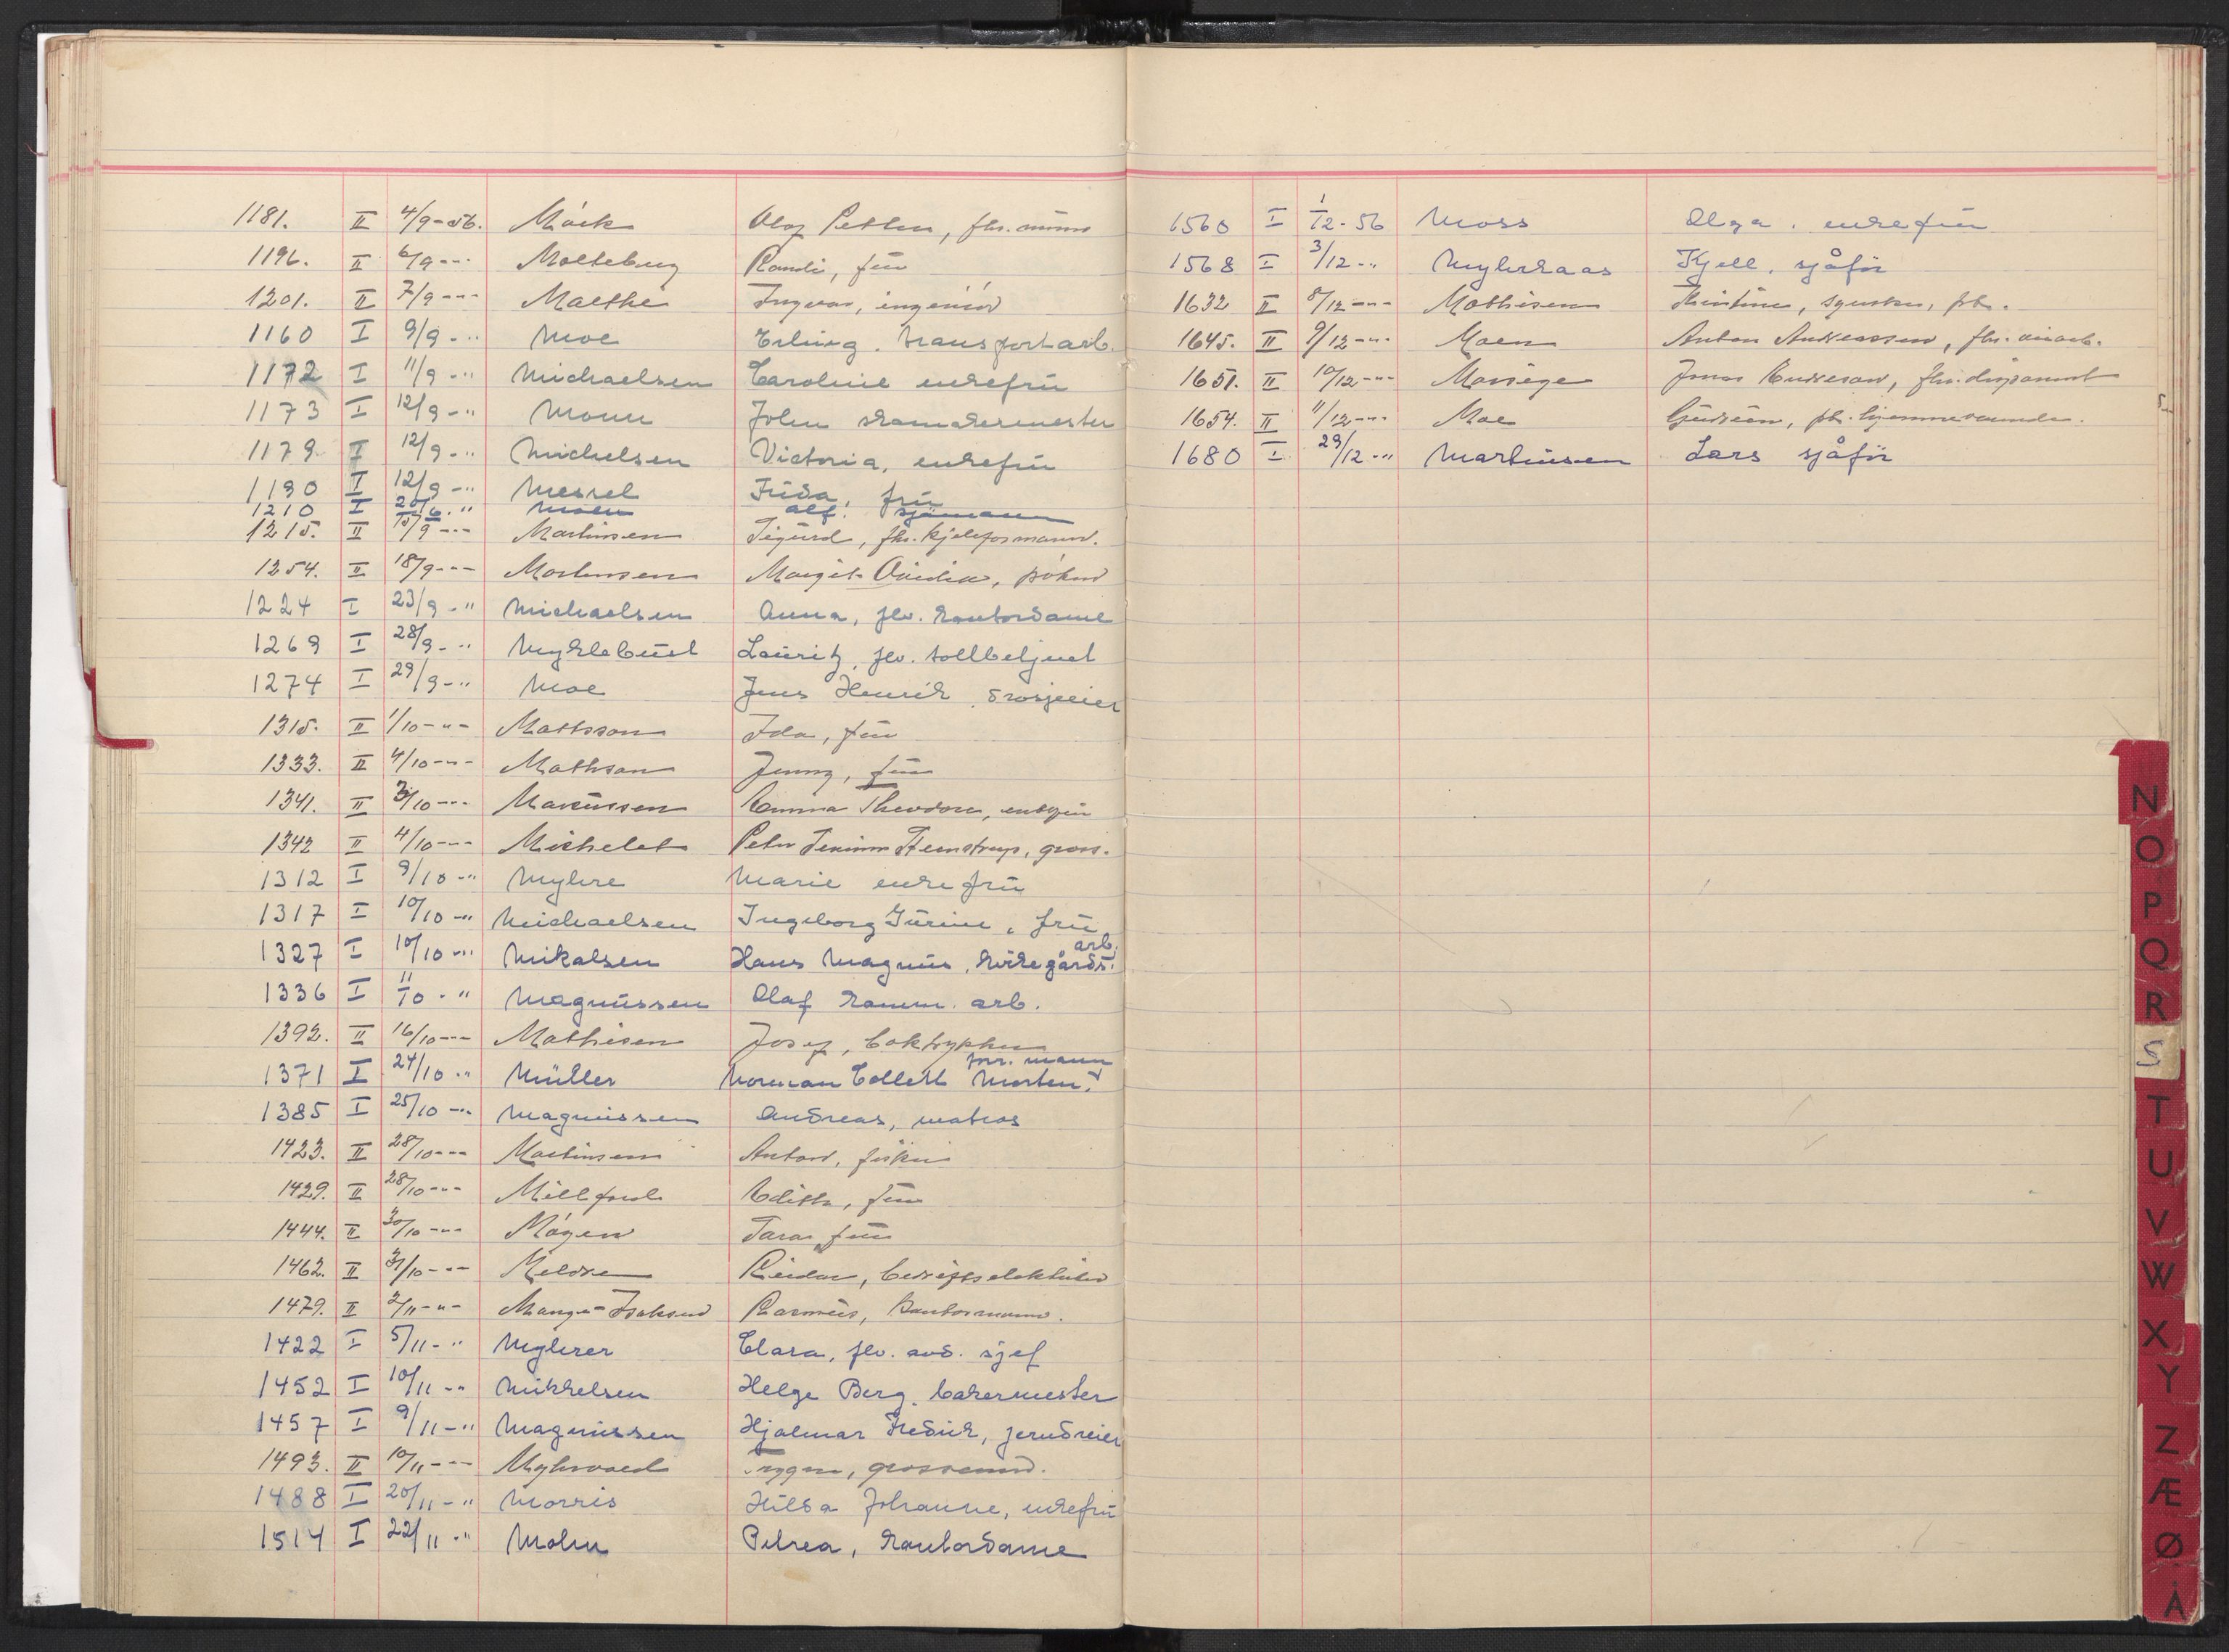 1181. II 4/9-56. Mörck Olaf Petter, fhv.
1196. II 6/9 --- Molteberg Randi, frü
1201. II 7/9 --- Maethe Ingvar, ingeniør
1160 I 9/9 - " Moe Erling. transportarb.
1172 I 11/9 - " Michaelsen Caroline enkefrü
1173 I 12/9 - " Monn John skomakermester
1179 I 12/9 - " Michelsen Victoria, enkefrü
1190 I 12/9 - " Messel Frida, frü
1210 I 20/6 " Moen Alf. sjömann
1215. II 15/9 --- Martinsen Sigurd, fhv. kjelepasmann.
1254. II 18/9 --- Mortensen Margit
1224 I 23/9 - " Michaelsen Anna, fhv. kontordame
1269 I 28/9 - " Myklebüst Lauritz, fhv. tollbetjent
1274 I 29/9 - " Moe Jens Henrik, drosjeeier
1315. II 1/10 - " - Mattsson Ida, frü
1333. II 4/10 - " - Mathson Jenny, frü
1341. II 3/10 --- Marcüssen Emma Theodora, enkefrü
1342 II 4/10 --- Michelet Peter Steenstrup, gross.
1312 I 9/10 - " Myhre Marie enkefrü
1317 I 10/10 - " Michaelsen Ingeborg Jürine, frü
1327 I 10/10 - " Mikalsen Hans Magnüs, kirkegårds. arb.
1336 I 11/10 - " Magnüssen Olaf komm. arb.
1392. II 16/10 --- Mathisen Josef, boktrykker
1371 I 24/10 - " Müller Norman Collett Morten. forr. mann
1385 I 25/10 - " Magnüssen Andreas, matros
1423. II 28/10 --- Martinsen Anton, fisker
1429. II 28/10 --- Millford Edith, frü
1444. II 30/10 --- Mogen Tara, frü
1462. II 31/10 --- Meldre Reidar, bedriftselektriker
1479. II 2/11 - " - Mange-Isaksen Rasmüs, kontormann.
1422 I 5/11 - " Myhrer Clara, fhv. avd. sjef
1452 I 10/11 - " Mikkelsen Helge Berg. bakermester
1457 I 9/11 - " Magnüssen Hjalmar Fredrik, jerndreier
1493. II 10/11 --- Myhrvold Trygve, grosserer.
1488 I 20/11 - " Morris Hilda Johanne, enkefrü
1514 I 22/11 - " Mohn Petrea, kontordame
1560 I 1/12 - 56 Moss Olga. enkefrü
1568 I 3/12 - " Myhrhaas Kjell, sjåför
1632 II 8/12 --- Mathisen sykesøster, frk.
1645. II 9/12 --- Moen Anton Andreassen, fhv.
1651. II 10/12 --- Jonas fhv. disponent
1654. II 11/12 --- Moe Gudrün, frk.
1680 I 29/12 - " Martinsen Lars sjåför
N
O
P
Q
R
S
T
U
V
W
X
Y
Z
Æ
Ø
Å